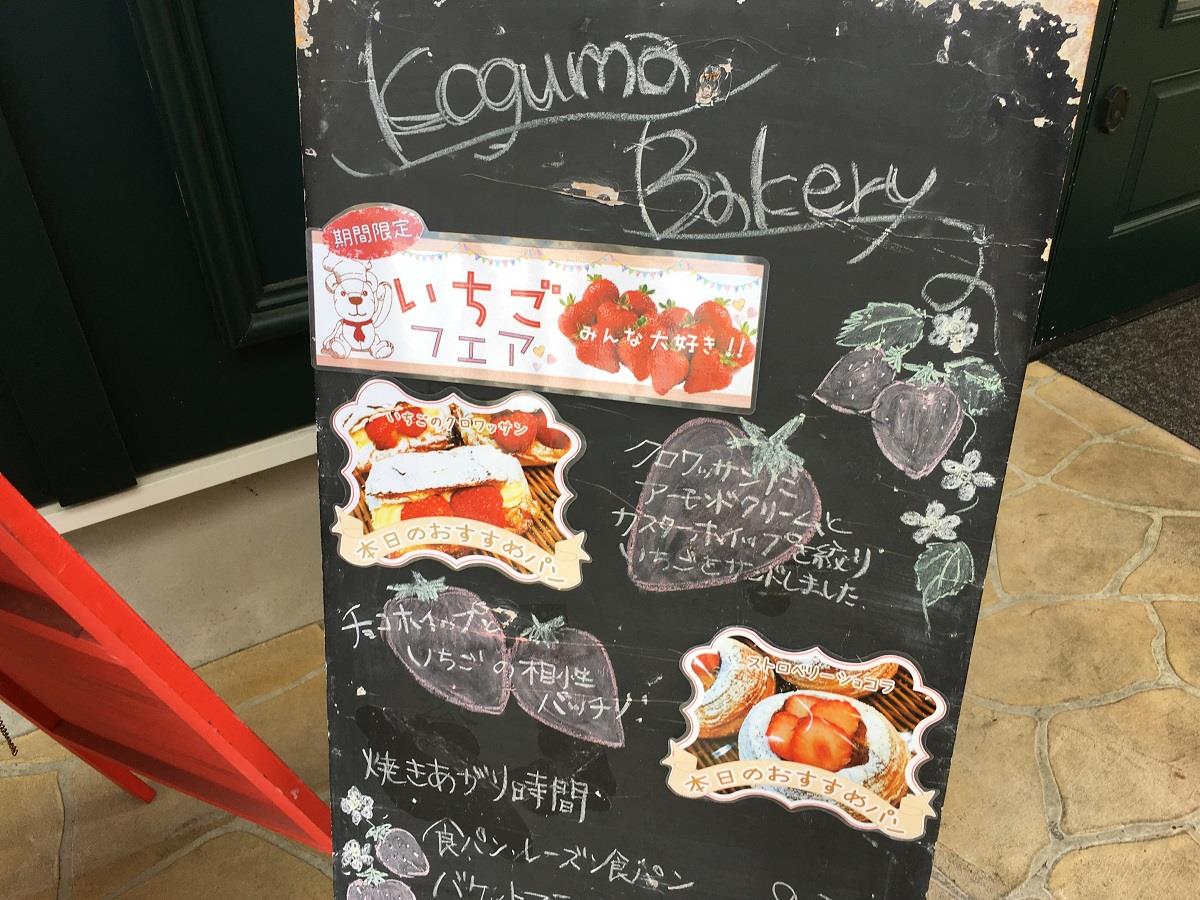 Koguma
Bakery
期間限定
いちご
フェア
みんな大好き!!
いちごのクロワッサン
本日のおすすめパン
クロワッサンに
アーモンドクリームと
カスターホイップを絞り
いちごをサンドしました
チョコホイップと
いちごの相性
バッチリ!
ストロベリーショコラ
本日のおすすめパン
焼きあがり時間
食パン、レーズン食パン
バケット